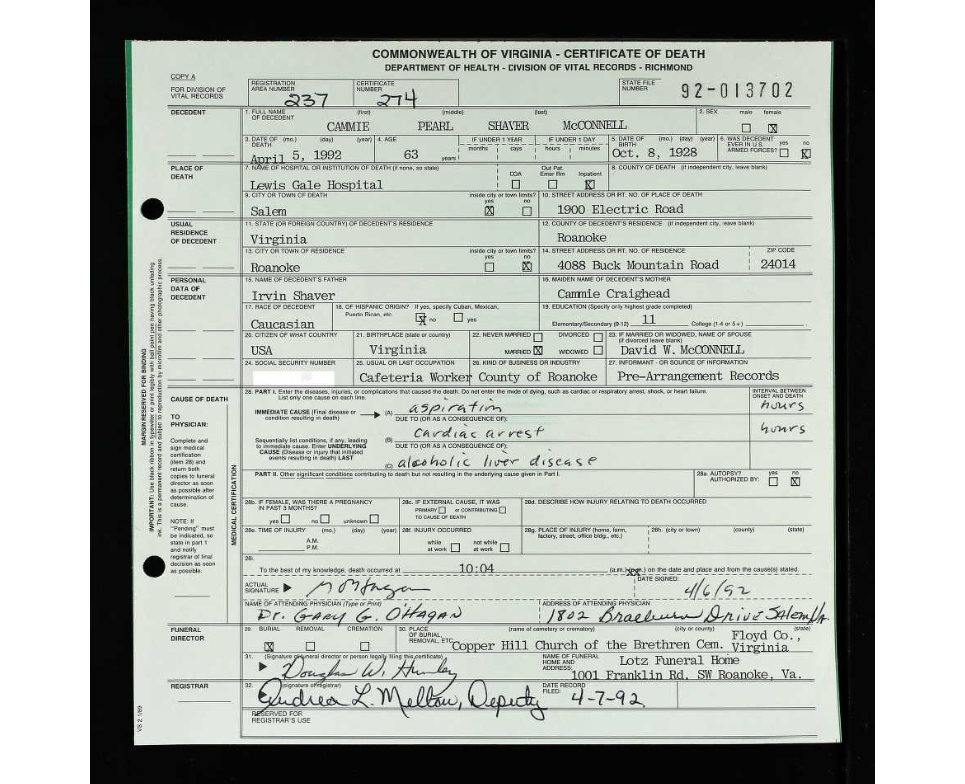 COMMONWEALTH OF VIRGINIA - CERTIFICATE OF DEATH
DEPARTMENT OF HEALTH - DIVISION OF VITAL RECORDS - RICHMOND
COPY A
FOR DIVISION OF VITAL RECORDS
REGISTRATION AREA NUMBER 237 CERTIFICATE NUMBER 274 STATE FILE NUMBER 92-013702
DECEDENT
1. FULL NAME OF DECEDENT (first) (middle) (last) 2. SEX male female
CAMMIE PEARL SHAVER McCONNELL X
3. DATE OF DEATH (mo.) (day) (year) 4. AGE IF UNDER 1 YEAR IF UNDER 1 DAY 5. DATE OF BIRTH (mo.) (day) (year) 6. WAS DECEDENT EVER IN U.S. ARMED FORCES? yes no
April 5, 1992 63 years months days hours minutes Oct. 8, 1928 X
PLACE OF DEATH
7. NAME OF HOSPITAL OR INSTITUTION OF DEATH (if none, so state) DOA Out Pat. Emer Rm Inpatient 8. COUNTY OF DEATH (if independent city, leave blank)
Lewis Gale Hospital X
9. CITY OR TOWN OF DEATH inside city or town limits? yes no 10. STREET ADDRESS OR RT. NO. OF PLACE OF DEATH
Salem X 1900 Electric Road
USUAL RESIDENCE OF DECEDENT
11. STATE (OR FOREIGN COUNTRY) OF DECEDENT'S RESIDENCE 12. COUNTY OF DECEDENT'S RESIDENCE (if independent city, leave blank)
Virginia Roanoke
13. CITY OR TOWN OF RESIDENCE inside city or town limits? yes no 14. STREET ADDRESS OR RT. NO. OF RESIDENCE ZIP CODE
Roanoke X 4088 Buck Mountain Road 24014
PERSONAL DATA OF DECEDENT
15. NAME OF DECEDENT'S FATHER 16. MAIDEN NAME OF DECEDENT'S MOTHER
Irvin Shaver Cammie Craighead
17. RACE OF DECEDENT 18. OF HISPANIC ORIGIN? If yes, specify Cuban, Mexican, Puerto Rican, etc. 19. EDUCATION (Specify only highest grade completed)
Caucasian X no yes Elementary/Secondary (0-12) 11 College (1-4 or 5+)
20. CITIZEN OF WHAT COUNTRY 21. BIRTHPLACE (state or country) 22. NEVER MARRIED DIVORCED 23. IF MARRIED OR WIDOWED, NAME OF SPOUSE (if divorced leave blank)
USA Virginia MARRIED X WIDOWED David W. McCONNELL
24. SOCIAL SECURITY NUMBER 25. USUAL OR LAST OCCUPATION 26. KIND OF BUSINESS OR INDUSTRY 27. INFORMANT - OR SOURCE OF INFORMATION
Cafeteria Worker County of Roanoke Pre-Arrangement Records
CAUSE OF DEATH
TO PHYSICIAN:
Complete and sign medical certification (item 28) and return both copies to funeral director as soon as possible after determination of cause.
NOTE: If "Pending" must be indicated, so state in part 1 and notify registrar of final decision as soon as possible.
MEDICAL CERTIFICATION
28. PART I. Enter the diseases, injuries, or complications that caused the death. Do not enter the mode of dying, such as cardiac or respiratory arrest, shock, or heart failure. List only one cause on each line. INTERVAL BETWEEN ONSET AND DEATH
IMMEDIATE CAUSE (Final disease or condition resulting in death) (A) aspiration hours
DUE TO (OR AS A CONSEQUENCE OF):
Sequentially list conditions, if any, leading to immediate cause. Enter UNDERLYING CAUSE (Disease or injury that initiated events resulting in death) LAST
(B) cardiac arrest hours
DUE TO (OR AS A CONSEQUENCE OF):
(C) alcoholic liver disease
PART II. Other significant conditions contributing to death but not resulting in the underlying cause given in Part I. 28a. AUTOPSY? AUTHORIZED BY: yes no X
28b. IF FEMALE, WAS THERE A PREGNANCY IN PAST 3 MONTHS? yes no unknown 28c. IF EXTERNAL CAUSE, IT WAS PRIMARY or CONTRIBUTING TO CAUSE OF DEATH 28d. DESCRIBE HOW INJURY RELATING TO DEATH OCCURRED
28e. TIME OF INJURY (mo.) (day) (year) A.M. P.M. 28f. INJURY OCCURRED while at work not while at work 28g. PLACE OF INJURY (home, farm, factory, street, office bldg., etc.) 28h. (city or town) (county) (state)
28i. To the best of my knowledge, death occurred at 10:04 (a.m. XX) on the date and place and from the cause(s) stated.
ACTUAL SIGNATURE DATE SIGNED: 4/6/92
NAME OF ATTENDING PHYSICIAN (Type or Print) ADDRESS OF ATTENDING PHYSICIAN
Dr. GARY G. O'HAGAN 1802 Braeburn Drive Salem VA
FUNERAL DIRECTOR
29. BURIAL REMOVAL CREMATION 30. PLACE OF BURIAL, REMOVAL, ETC. (name of cemetery or crematory) (city or county) (state)
X Copper Hill Church of the Brethren Cem. Floyd Co., Virginia
31. (Signature of funeral director or person legally filing this certificate) NAME OF FUNERAL HOME AND ADDRESS: Lotz Funeral Home
Douglas W. 1001 Franklin Rd. SW Roanoke, Va.
REGISTRAR
32. (signature of registrar) DATE RECORD FILED:
Andrea L. Melton, Deputy 4-7-92
RESERVED FOR REGISTRAR'S USE
VS 2 1/89
MARGIN RESERVED FOR BINDING
IMPORTANT: Use black ribbon in typewriter or print legibly with ball point pen having black unfading ink. This is a permanent record and subject to reproduction by microfilm and other photographic process.